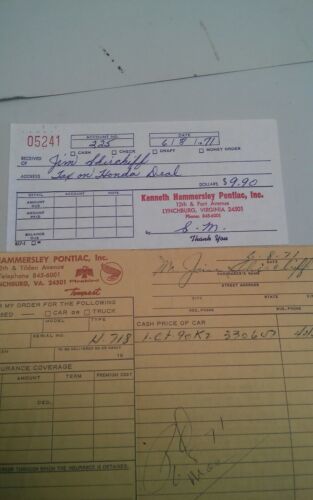 05241
ACCOUNT NO. 225
DATE 6/8 1971
CASH CHECK DRAFT MONEY ORDER
RECEIVED OF Jim
ADDRESS Tax on Honda Deal
DOLLARS $9.90
DETAIL ACCOUNT NOTE
AMOUNT DUE
AMOUNT PAID
BALANCE DUE
Kenneth Hammersley Pontiac, Inc.
12th & Park Avenue
LYNCHBURG, VIRGINIA 24501
Phone: 845-6001
by S. M.
Thank You
HAMMERSLEY PONTIAC, Inc.
12th & Tilden Avenue
Telephone 845-6001
LYNCHBURG, VA. 24501
Tempest
Mr. Jim
PURCHASER'S NAME
STREET ADDRESS
CITY STATE
MY ORDER FOR THE FOLLOWING
CAR OR TRUCK
MODEL TYPE
SERIAL NO. 718
TO BE DELIVERED ON OR ABOUT
19
INSURANCE COVERAGE
AMOUNT TERM PREMIUM COST
DED.
CASH PRICE OF CAR
71